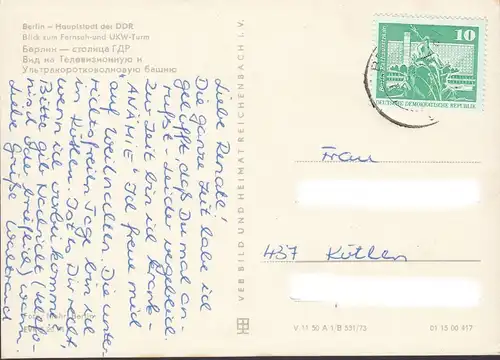 Berlin – Hauptstadt der DDR
Blick zum Fernseh- und UKW-Turm
Берлин — столица ГДР
Вид на Телевизионную и
Ультракоротковолновую башню
Liebe Renate!
Die ganze Zeit habe ich
gehofft, daß Du mal an-
rufst – leider vergeblich.
Zur Zeit bin ich krank –
"ANÄMIE" Ich freue mich
auf Weihnachten. Die unter-
richtsfreien Tage bin ich
in Köthen. Ist es Dir recht,
wenn ich vorbeikomme?
Bitte gib Nachricht (telefo-
nisch od. brieflich)
Liebe Grüße Waltraud
VEB BILD UND HEIMAT REICHENBACH i. V.
10
DEUTSCHE DEMOKRATISCHE REPUBLIK
Frau
437 Köthen
V 11 50 A 1/B 551/73
01 15 00 417